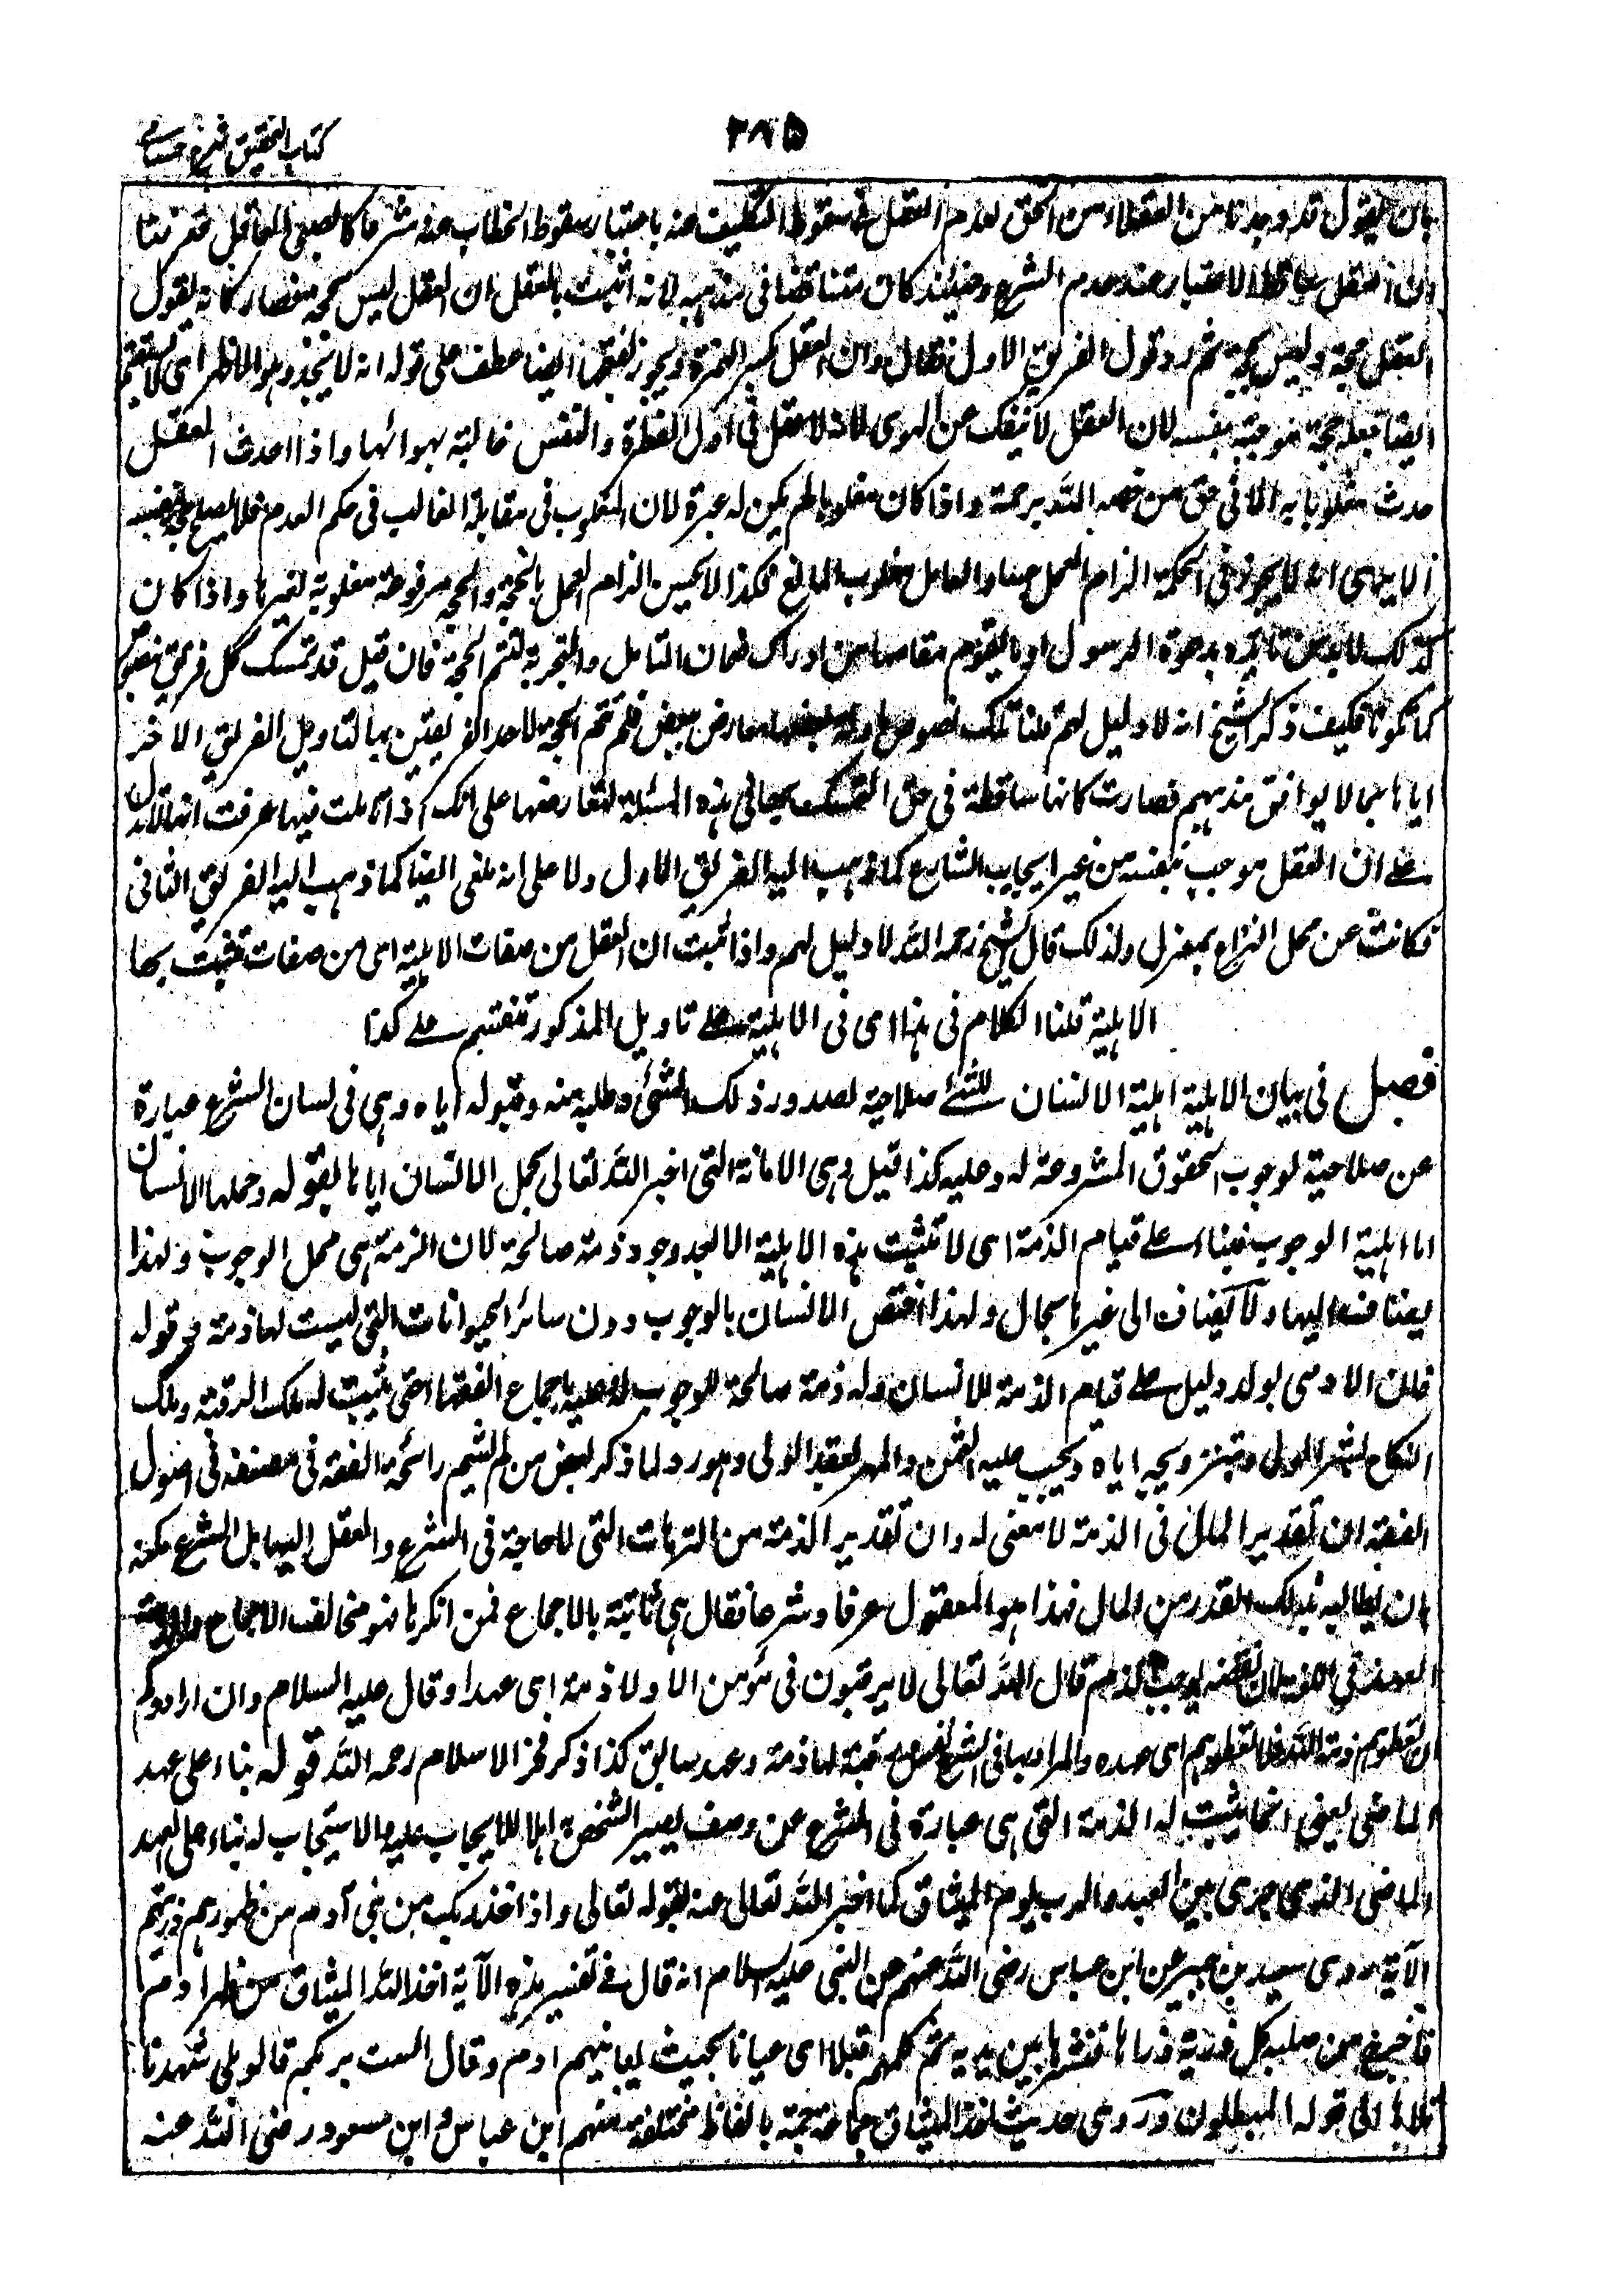 كتاب التحقيق شرح حسامى
٢٨٥
بان يقول قد وجدنا من العقلاء من الحق بعدم العقل فى سقوط التكليف عنه باعتبار سقوط الخطاب عنه شرعا كالصبى العاقل فعرفنا
ان العقل ساقط الاعتبار عند عدم الشرع وحينئذ كان متناقضا فى مذهبه لانه اثبت بالعقل ان العقل ليس بحجة فصار كانه يقول
العقل حجة وليس بحجة ثم رد قول الفريق الاول فقال وان العقل بكسر الهمزة ويجوز بفتحها ايضا عطف على قوله انه لا يجد وهو الاظهر اى لا يستقيم
ايضا جعله حجة موجبة بنفسه لان العقل لا ينفك عن الهوى لانه لا عقل فى اول الفطرة والنفس غالبة بهوائها واذا احدث العقل
حدث مغلوبا به الا فى حق من خصه الله برحمته واذا كان مغلوبا لم يكن له عبرة لان المغلوب فى مقابلة الغالب فى حكم العدم فلا يصلح حجة بنفسه
الا يرى انه لا يجوز فى الحكمة الزام العمل حسا والعامل مغلوب المانع فكذا لا يحسن الزام العمل بالحجة والحجة مرفوعة مغلوبة لغيرها واذا كان
كذلك لا بد من تاييده بدعوة الرسول او ما يقوم مقامها من ادراك زمان التامل والتجربة لتتم الحجة فان قيل قد تمسك كل فريق بنصوص
كما ذكرنا فكيف ذكر الشيخ انه لا دليل لهم قلنا تلك نصوص ماولة بعضها معارض ببعض فلم تتم الحجة لاحد الفريقين بها لتاويل الفريق الاخر
اياها بما لا يوافق مذهبهم فصارت كانها ساقطة فى حق التمسك بها فى هذه المسئلة لتعارضها على انك اذا تاملت فيها عرفت انها لا تدل
على ان العقل موجب بنفسه من غير ايجاب الشارع كما ذهب اليه الفريق الاول ولا على انه ملغى ايضا كما ذهب اليه الفريق الثانى
فكانت عن محل النزاع بمعزل ولذلك قال الشيخ رحمه الله لا دليل لهم واذا ثبت ان العقل من صفات الاهلية اى من صفات تثبت بها
الاهلية قلنا الكلام فى هذا اى فى الاهلية على تاويل المذكور تنقسم على كذا
فصل فى بيان الاهلية اهلية الانسان للشئ صلاحية لصدور ذلك الشئ وطلبه منه وقبوله اياه وهى فى لسان الشرع عبارة
عن صلاحية لوجوب الحقوق المشروعة له وعليه كذا قيل وهى الامانة التى اخبر الله تعالى بحمل الانسان اياها بقوله وحملها الانسان
اما اهلية الوجوب فبناء على قيام الذمة اى لا تثبت هذه الاهلية الا بعد وجود ذمة صالحة لان الذمة هى محل الوجوب ولهذا
يضاف اليها ولا يضاف الى غيرها بحال ولهذا اختص الانسان بالوجوب دون سائر الحيوانات التى ليست لها ذمة وقوله
فان الادمى يولد دليل على قيام الذمة للانسان وله ذمة صالحة للوجوب له وعليه باجماع الفقهاء حتى يثبت له ملك الرقبة وملك
النكاح بشراء الولى وبتزويجه اياه ويجب عليه الثمن والمهر بعقد الولى وهو رد لما ذكر بعض من لم يشم رائحة الفقه فى مصنفه فى اصول
الفقه ان تقدير المال فى الذمة لا معنى له وان تقدير الذمة من الترهات التى لا حاجة فى الشرع والعقل اليها بل الشرع مكنه
ان يطالبه بذلك القدر من المال فهذا هو المعقول عرفا وشرعا فقال هى ثابتة بالاجماع فمن انكرها فهو مخالف الاجماع والذمة
العهد فى اللغة لان نقضه يوجب الذم قال الله تعالى لا يرقبون فى مؤمن الا ولا ذمة اى عهدا وقال عليه السلام وان ارادوكم
ان تعطوهم ذمة الله فلا تعطوهم اى عهده والمراد بها فى الشرع نفس ورقبة لها ذمة وعهد سابق كذا ذكر فخر الاسلام رحمه الله قوله بناء على عهد
الماضى يعنى انما يثبت له الذمة التى هى عبارة فى الشرع عن وصف يصير الشخص به اهلا للايجاب عليه والاستيجاب له بناء على العهد
الماضى الذى جرى بين العبد والرب يوم الميثاق كما اخبر الله تعالى عنه بقوله تعالى واذ اخذ ربك من بنى آدم من ظهورهم ذريتهم
الآية روى سعيد بن جبير عن ابن عباس رضى الله عنهم عن النبى عليه السلام انه قال فى تفسير هذه الآية اخذ الله الميثاق من ظهر ادم
فاخرج من صلبه كل ذرية ذراها فنشرها بين يديه ثم كلمهم قبلا اى عيانا بحيث يعاينهم ادم وقال الست بربكم قالوا بلى شهدنا
تلاها الى قوله المبطلون وروى حديث اخذ الميثاق جماعة جمة بالفاظ مختلفة منهم ابن عباس وابن مسعود رضى الله عنه